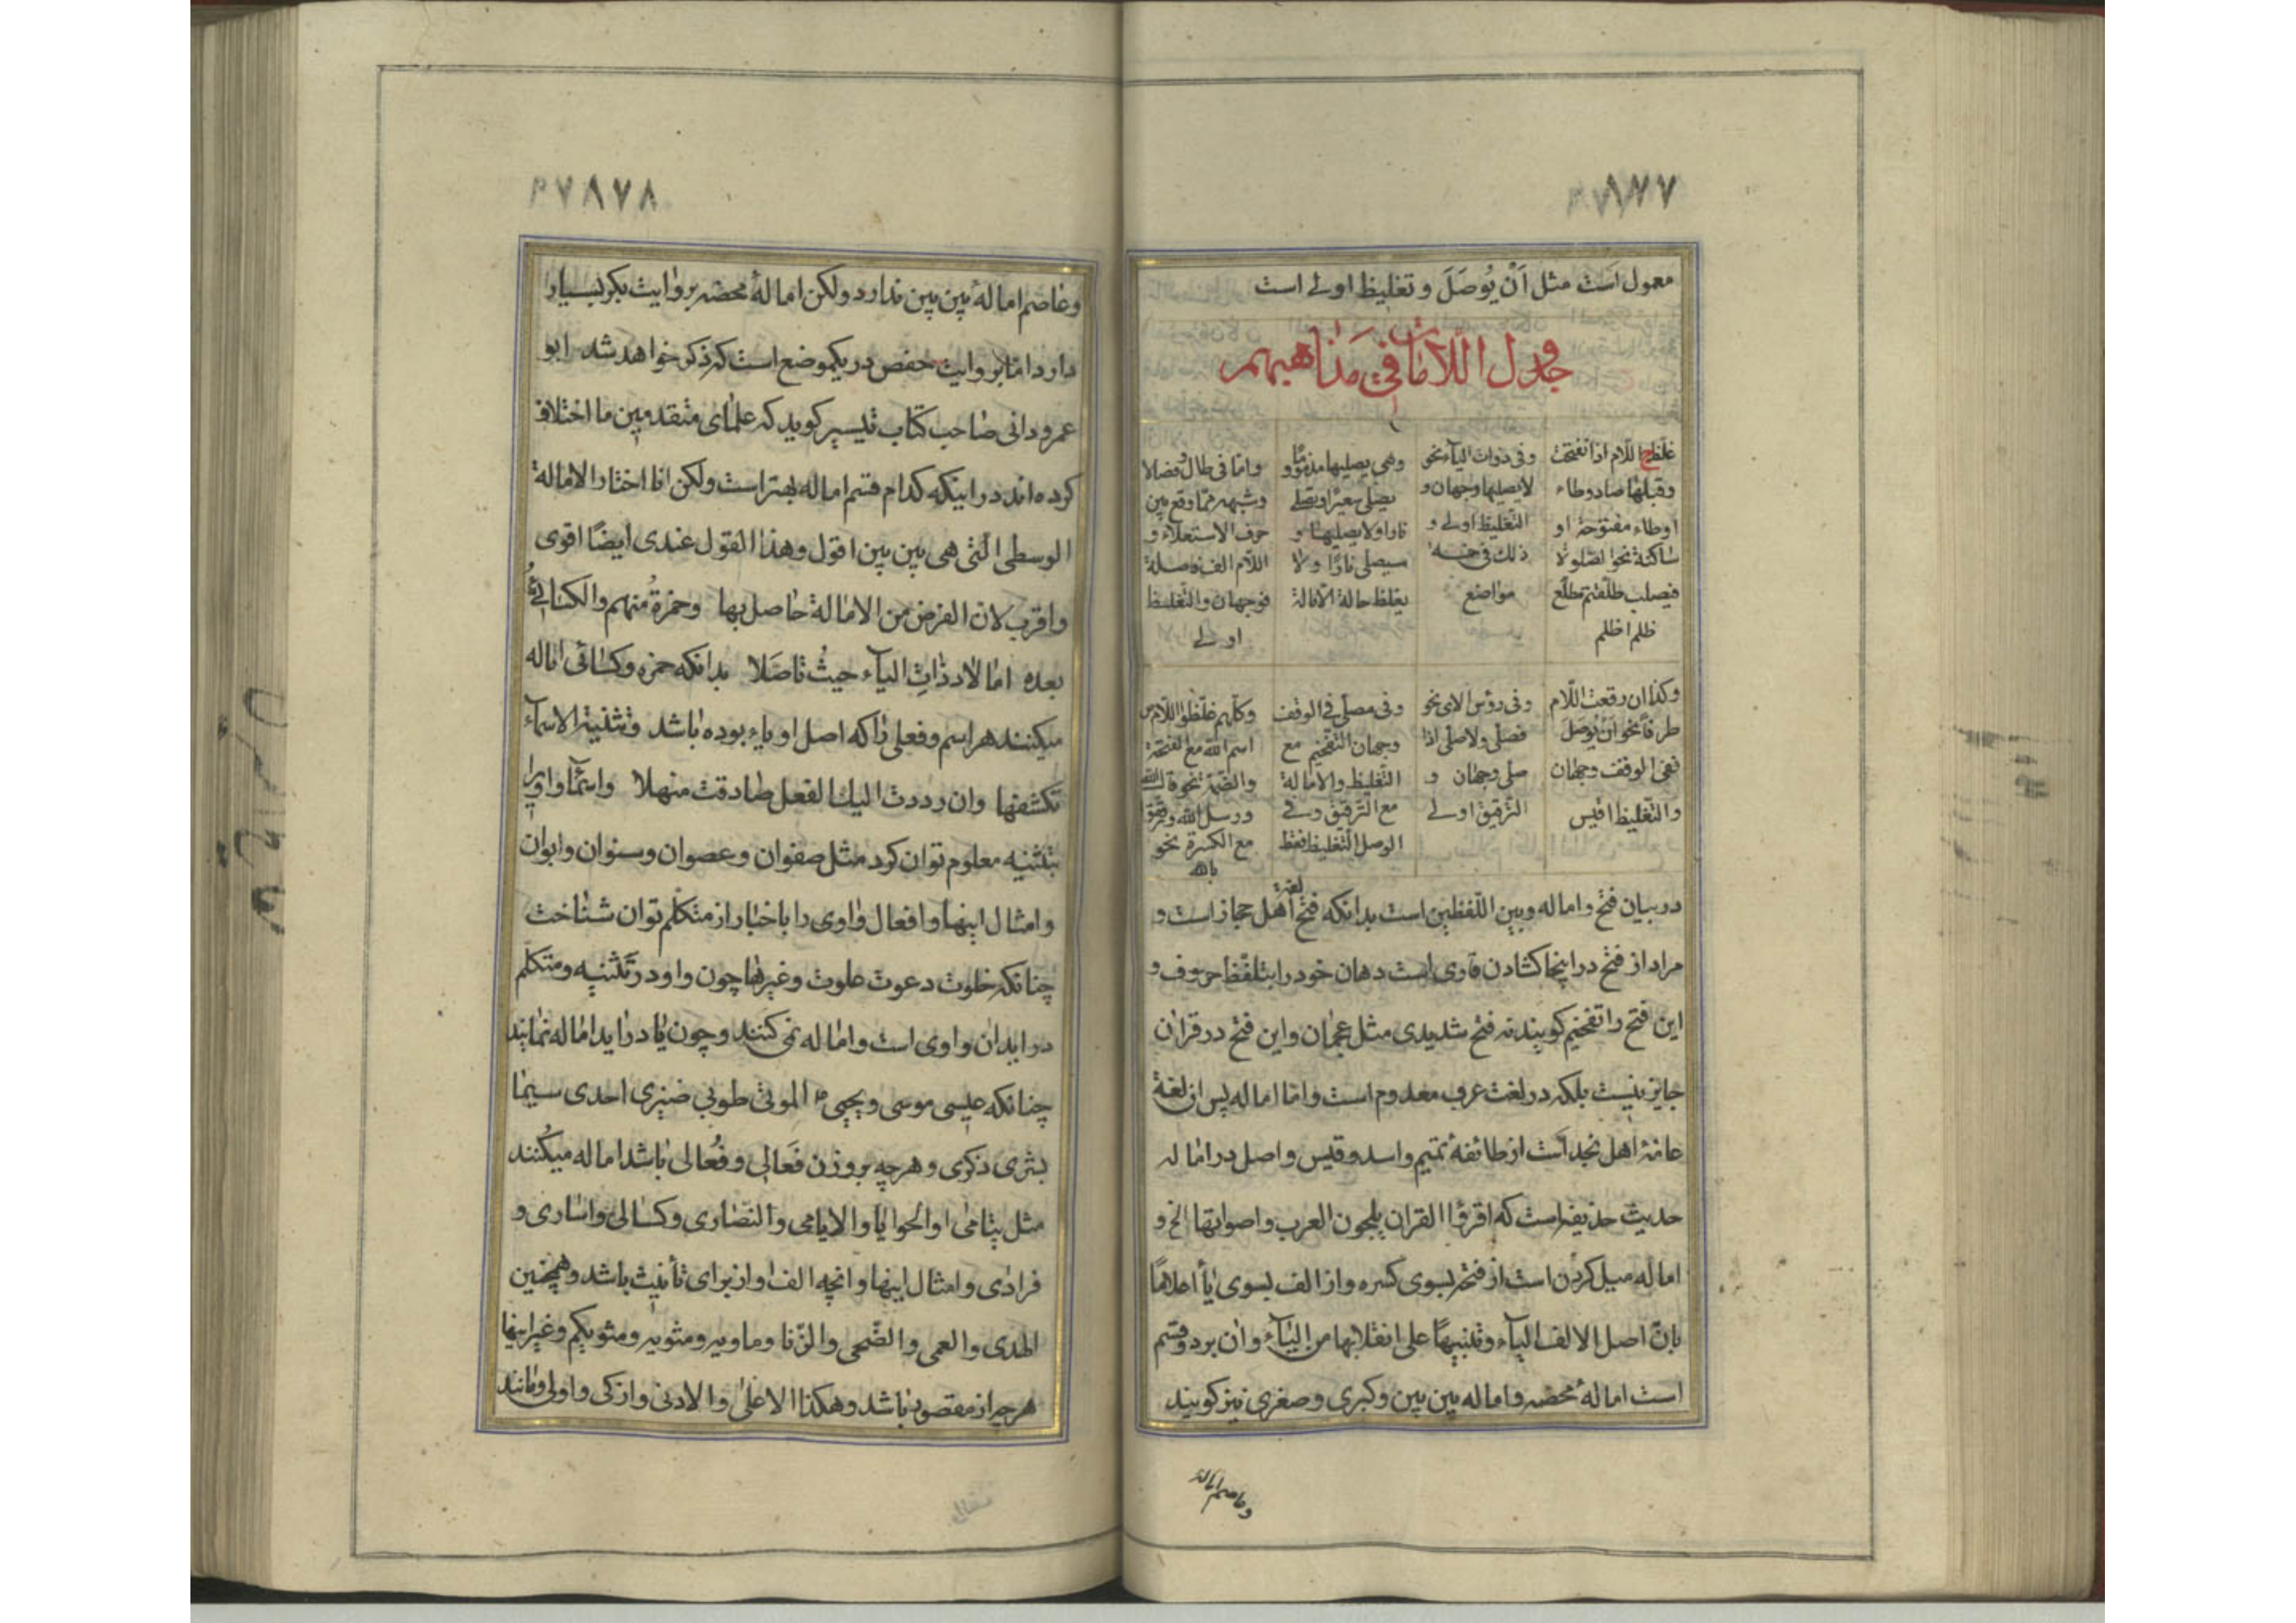 ۸۷۷
معمول است مثل اَنْ يُوصَلَ و تغليظ اولے است
جدول اللامات في مذاهبهم
غلظ ج اللام اذا انفتحت
وقبلها صاد وطاء
اوظاء مفتوحة او
ساكنة نحو الصلوة لا
فيصلب طلقتم مطلع
ظلم اظلم
وفى ذوات الياء نحو
لا يصليها وجهان و
التغليظ اولے و
ذلك فى خمسة
مواضع
وهى يصليها مذموما و
يصلى سعيرا وتصلى
نارا ولا يصليها و
سيصلى نارا ولا
يغلظ حالة الامالة
واما فى طال وفصالا
وشبهه مما وقع بين
حرف الاستعلاء و
اللام الف فاصلة
فوجهان والتغليظ
اولے
وكذا ان وقعت اللام
طرفا نحو ان يوصل
ففى الوقف وجهان
والتغليظ اقيس
وفى رؤس الاى نحو
فصلى ولا صلى اذا
صلى وجهان و
الترقيق اولے
وفى مصلى فى الوقف
وجهان التفخيم مع
التغليظ والامالة
مع الترقيق وفى
الوصل التغليظ فقط
وكلهم غلظوا اللام من
اسم الله مع الفتحة
والضمة نحو قال الله
ورسل الله ورقق
مع الكسرة نحو
بالله
در بيان فتح و اماله وبين اللفظين است بدانكه فتح لغة اهل حجاز است و
مراد از فتح در اينجا كشادن قارى است دهان خود را بتلفظ حروف و
اين فتح را تفخيم كويند نه فتح شديدى مثل عجمان و اين فتح در قران
جايز نيست بلكه در لغت عرب معدوم است و اما اماله پس ان لغة
عامهٔ اهل نجد است از طائفهٔ تميم و اسد و قيس و اصل در اماله
حديث حذيفه است كه اقرؤا القران بلحون العرب و اصواتها الخ و
اماله ميل كردن است از فتحه بسوى كسره و از الف بسوى يا اعلاما
بان اصل الالف الياء و تنبيها على انقلابها من الياء و ان بر دو قسم
است امالهٔ محضه و اماله بين بين و كبرى و صغرى نيز كويند
وعاصم اماله
۸۷۸
وعاصم امالهٔ بين بين ندارد ولكن امالهٔ محضه بروايت بكر بسيار
دارد اما بروايت حفص در يكموضع است كه ذكر خواهد شد ابو
عمرو دانى صاحب كتاب تيسير كويد كه علماى متقدمين ما اختلاف
كرده اند در اينكه كدام قسم اماله بهتر است ولكن انا اختار الامالة
الوسطى التى هى بين بين اقول وهذا القول عندى ايضا اقوى
واقرب لان الغرض من الامالة حاصل بها وحمزة منهم والكسائى
بعده امالا ذوات الياء حيث تاصلا بدانكه حمزه و كسائى اماله
ميكنند هر اسم و فعلى را كه اصل او ياء بوده باشد وتثنية الاسماء
تكشفها وان رددت اليك الفعل صادفت منهلا واسما واوى را
بتثنيه معلوم توان كرد مثل صفوان و عصوان و سنوان و ابوان
و امثال اينها و افعال واوى را باخبار از متكلم توان شناخت
چنانكه خلوت دعوت علوت وغيرها چون واو در تثنيه و متكلم
درايد ان واوى است و اماله نمى كنند و چون يا درايد اماله نمايند
چنانكه عيسى موسى و يحيى الموتى طوبى ضيزى احدى سيما
بشرى ذكرى و هرچه بر وزن فَعالى و فُعالى باشد اماله ميكنند
مثل يتامى او الحوايا و الايامى و النصارى و كسالى و اسارى و
فرادى و امثال اينها و انچه الف او از براى تأنيث باشد وهمچنين
الهدى و العمى و الضحى و الزنا و ماويه و مثويه و مثويكم و غير اينها
هرچه از مقصور باشد وهكذا الاعلى و الادنى و ازكى و اولى و مانند